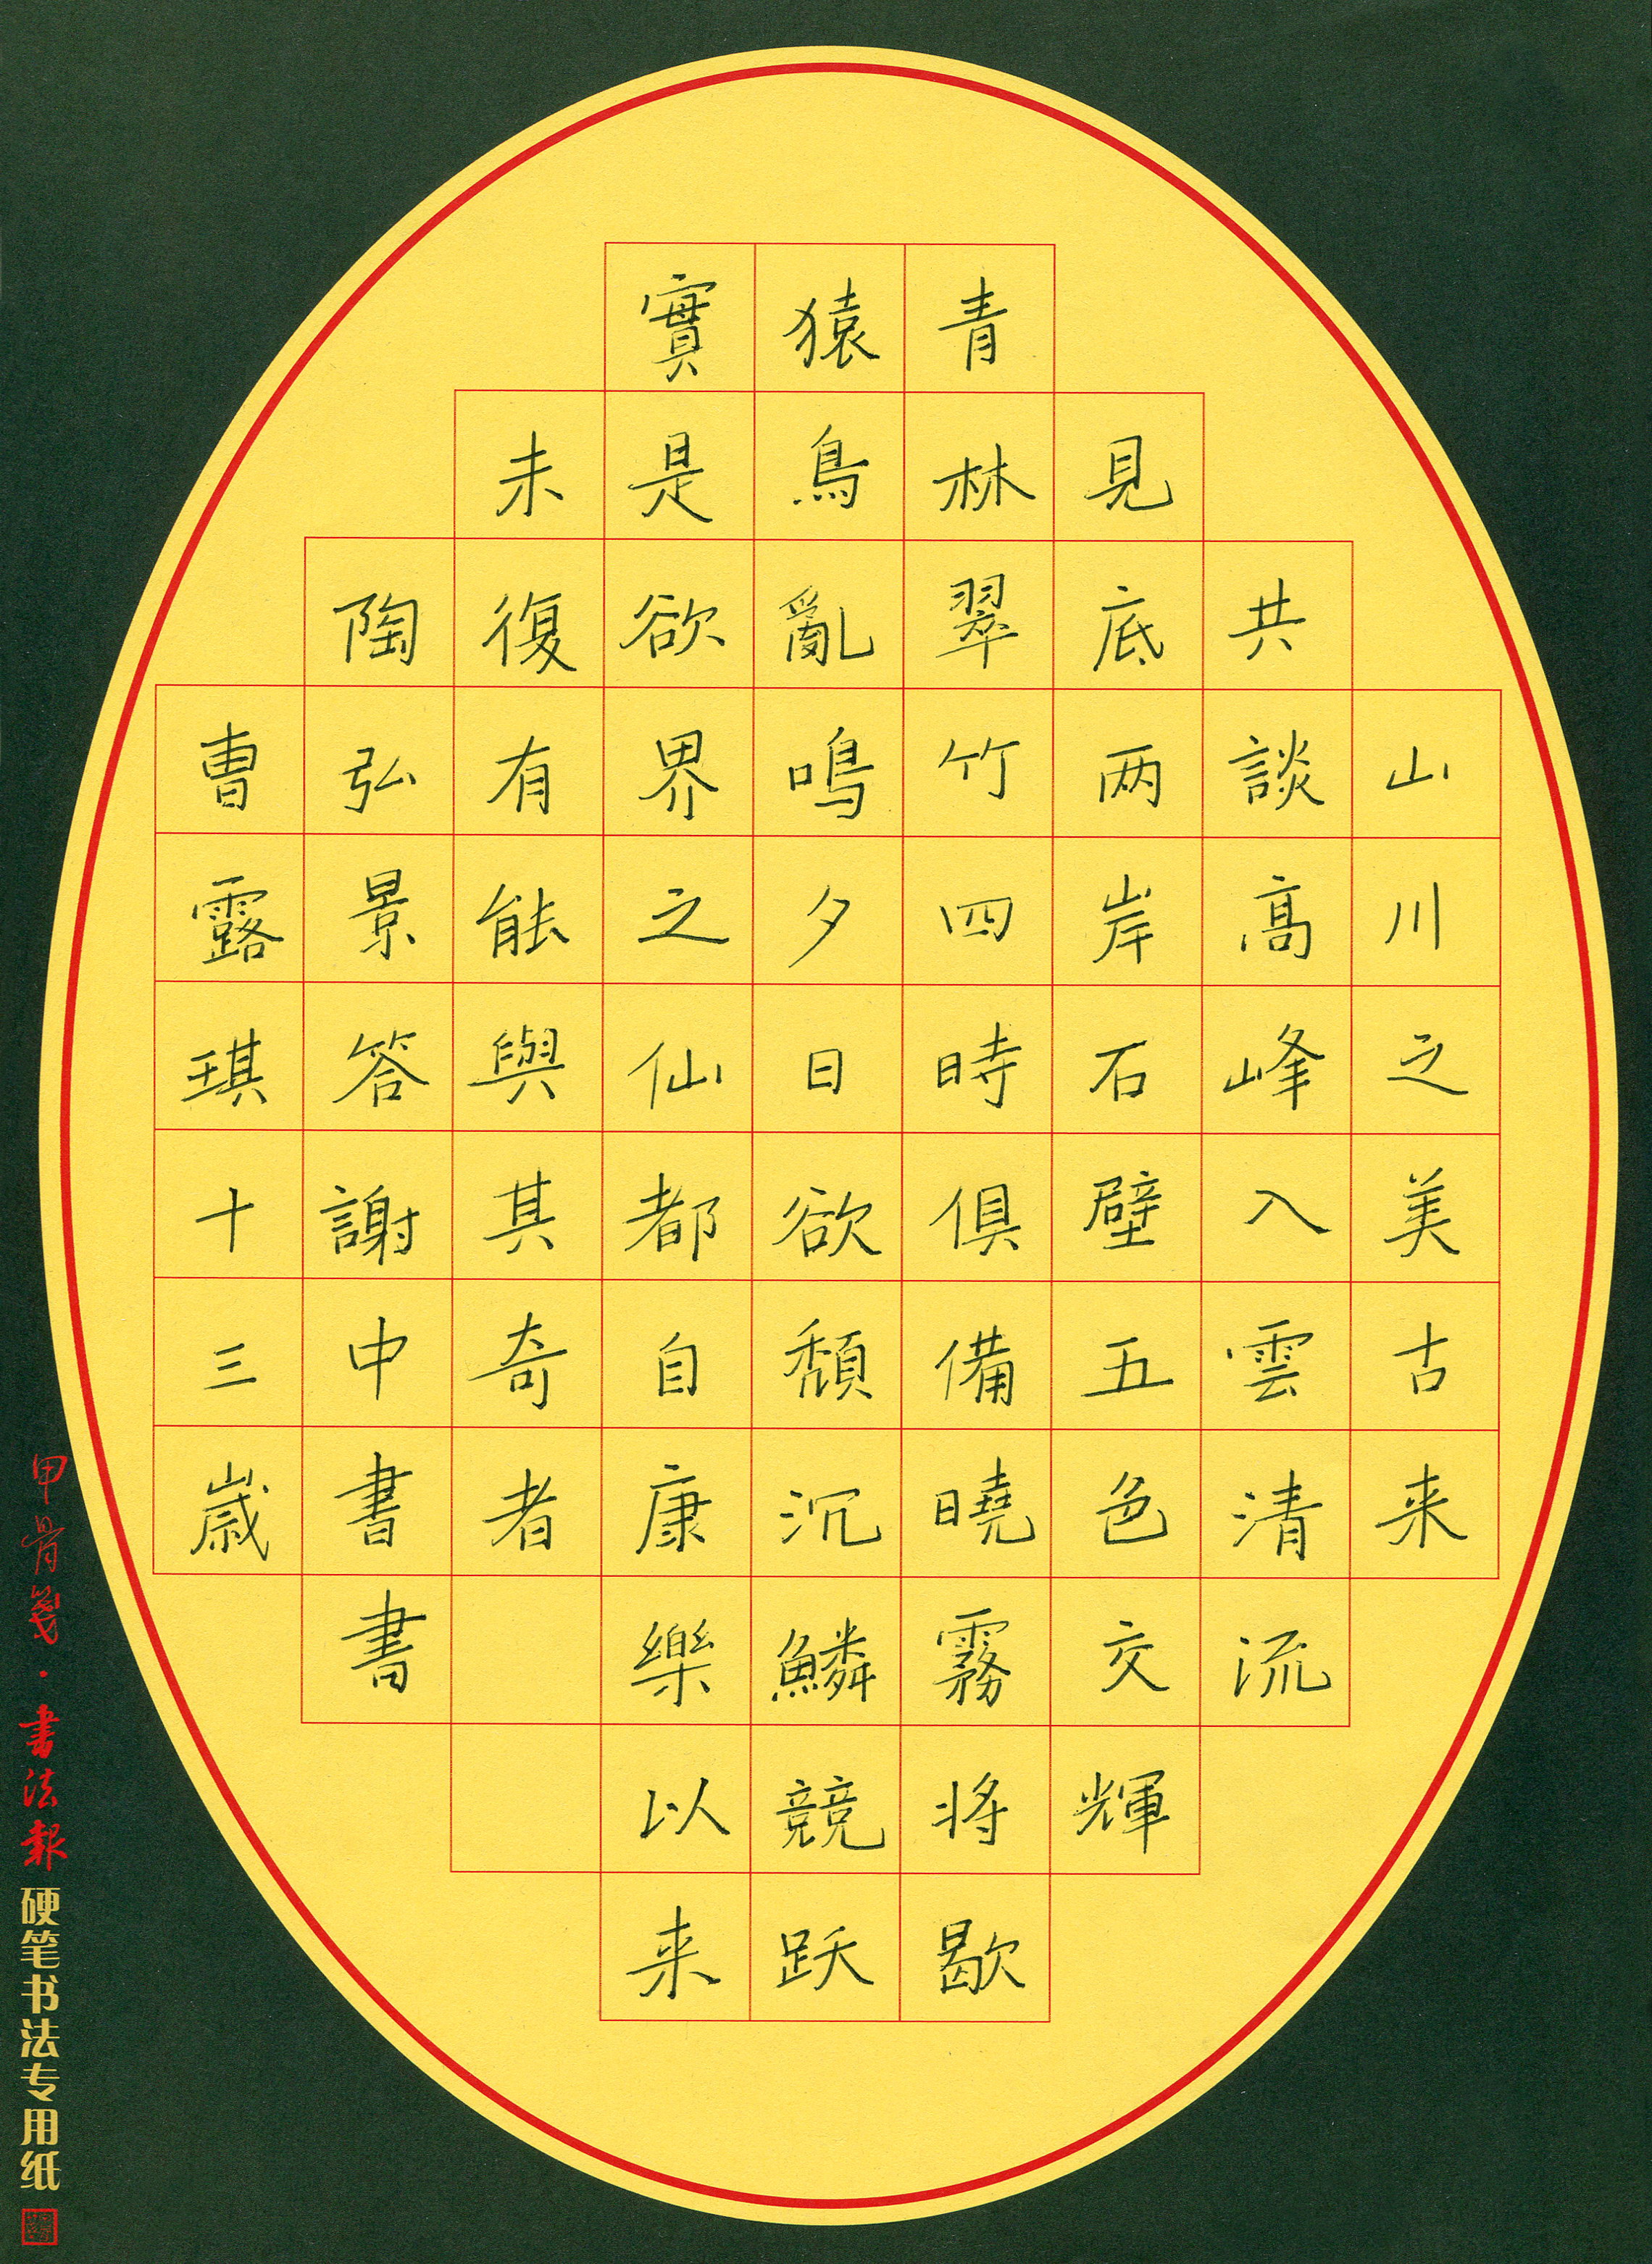 山川之美古来
共談高峰入雲清流
見底两岸石壁五色交輝
青林翠竹四時俱備曉霧將歇
猿鳥亂鳴夕日欲頹沉鱗競跃
實是欲界之仙都自康樂以来
未復有能與其奇者
陶弘景答謝中書書
曹露琪十三歲
甲骨箋·書法報 硬笔书法专用纸